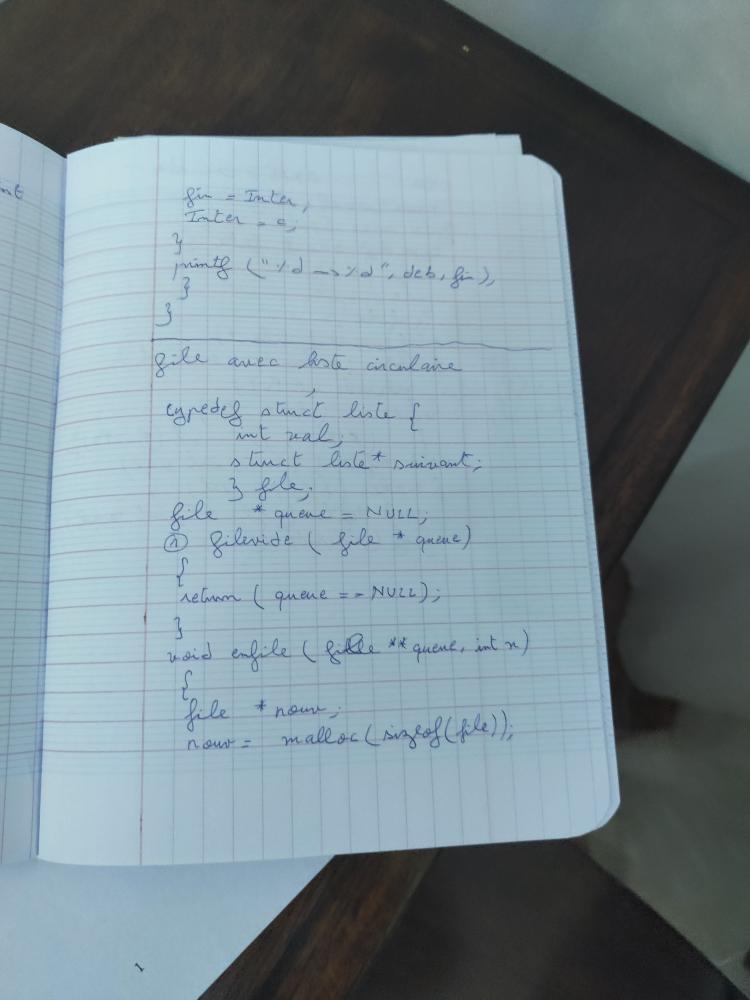 nt
fin = Inter;
Inter = c;
}
printf ("%d —>%d", deb, fin);
}
}
file avec liste circulaire
typedef struct liste {
int val;
struct liste* suivant;
} file;
file * queue = NULL;
① filevide ( file * queue)
{
return ( queue == NULL);
}
void enfile ( file ** queue, int x)
{
file * nouv;
nouv = malloc(sizeof(file));
1